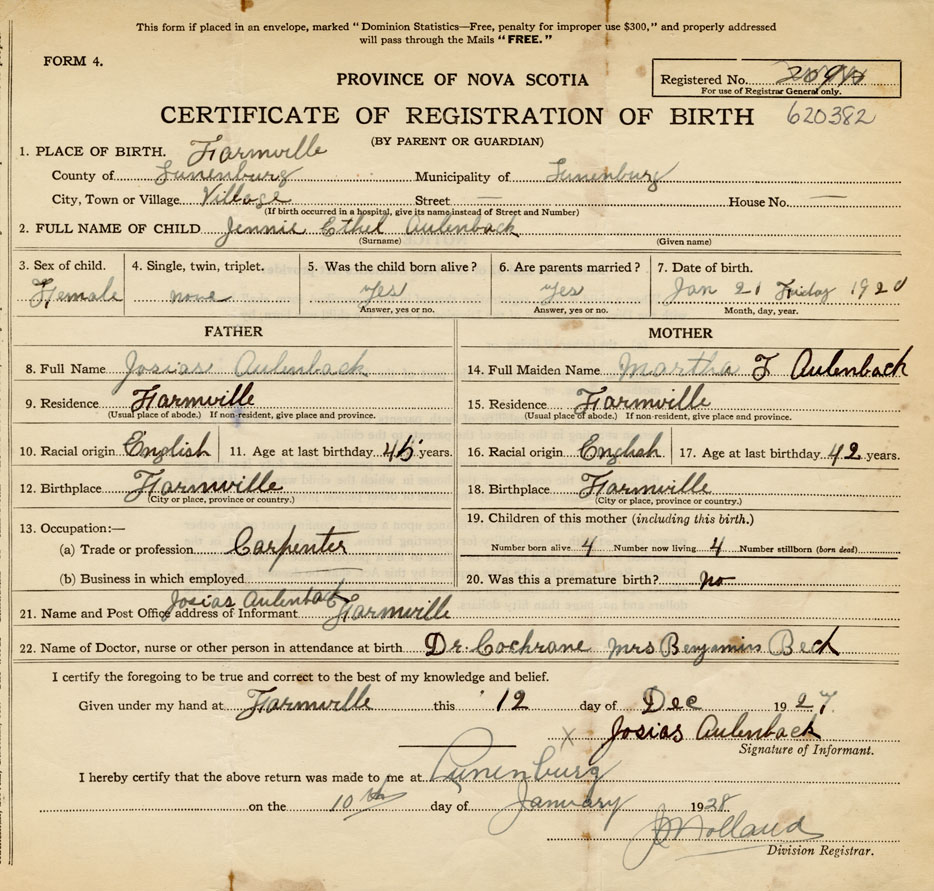 This form if placed in an envelope, marked "Dominion Statistics—Free, penalty for improper use $300," and properly addressed
will pass through the Mails "FREE."
FORM 4.
PROVINCE OF NOVA SCOTIA
Registered No.
For use of Registrar General only.
CERTIFICATE OF REGISTRATION OF BIRTH 620382
(BY PARENT OR GUARDIAN)
1. PLACE OF BIRTH. Farmville
County of Lunenburg Municipality of Lunenburg
City, Town or Village Village Street — House No. —
(If birth occurred in a hospital, give its name instead of Street and Number)
2. FULL NAME OF CHILD Jennie Ethel Aulenback
(Surname) (Given name)
3. Sex of child. 4. Single, twin, triplet. 5. Was the child born alive? 6. Are parents married? 7. Date of birth.
Female none Yes Yes Jan 21 Friday
Answer, yes or no. Answer, yes or no. Month, day, year.
FATHER MOTHER
8. Full Name Josias Aulenback 14. Full Maiden Name Martha F Aulenback
9. Residence Farmville 15. Residence Farmville
(Usual place of abode.) If non-resident, give place and province. (Usual place of abode.) If non-resident, give place and province.
10. Racial origin English 11. Age at last birthday years. 16. Racial origin English 17. Age at last birthday 42 years.
12. Birthplace Farmville 18. Birthplace Farmville
(City or place, province or country.) (City or place, province or country.)
13. Occupation:— 19. Children of this mother (including this birth.)
(a) Trade or profession Carpenter Number born alive 4 Number now living 4 Number stillborn (born dead)
(b) Business in which employed 20. Was this a premature birth? no
Josias Aulenback
21. Name and Post Office address of Informant Farmville
22. Name of Doctor, nurse or other person in attendance at birth Dr. Cochrane Mrs Benjamin Beck
I certify the foregoing to be true and correct to the best of my knowledge and belief.
Given under my hand at Farmville this 12 day of Dec 1927.
X Josias Aulenback
Signature of Informant.
I hereby certify that the above return was made to me at Lunenburg
on the 10th day of January 1928
Holland
Division Registrar.